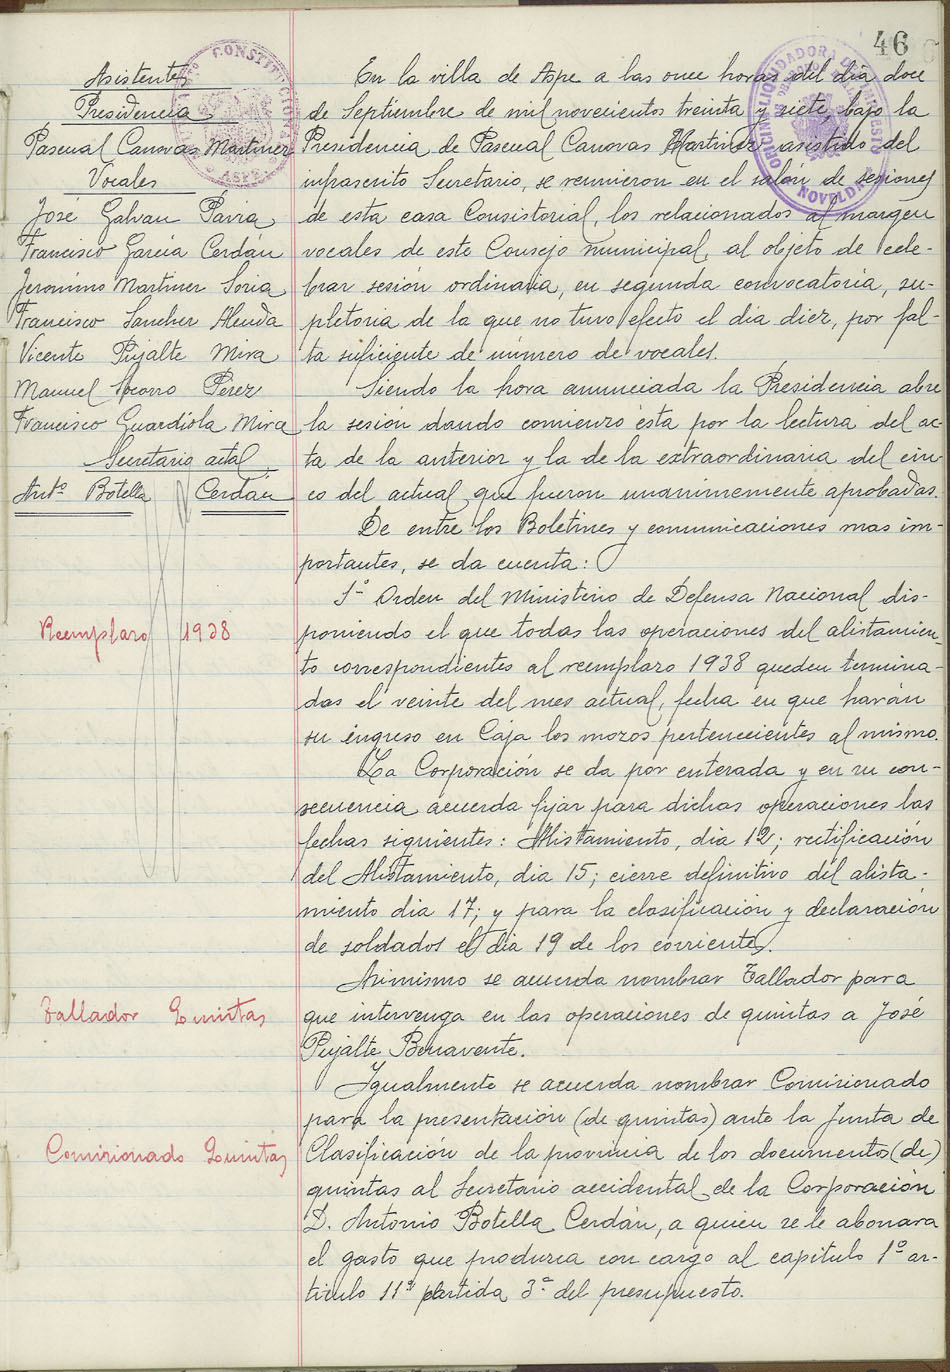 46
Asistentes
Presidencia
Pascual Canovas Martinez
Vocales
José Galvan Pavia
Francisco García Cerdán
Jerónimo Martinez Soria
Francisco Sanchez Almida
Vicente Pujalte Mira
Manuel Socorro Perez
Francisco Guardiola Mira
Secretario actal
Antº Botella Cerdán
En la villa de Aspe a las once horas del dia doce
de Septiembre de mil novecientos treinta y siete, bajo la
Presidencia de Pascual Canovas Martinez asistido del
infrascrito Secretario, se reunieron en el salon de sesiones
de esta casa Consistorial, los relacionados al margen
vocales de este Consejo municipal, al objeto de cele-
brar sesión ordinaria, en segunda convocatoria, su-
pletoria de la que no tuvo efecto el dia diez, por fal-
ta suficiente de número de vocales.
Siendo la hora anunciada la Presidencia abre
la sesión dando comienzo ésta por la lectura del ac-
ta de la anterior y la de la extraordinaria del cin-
co del actual, que fueron unanimemente aprobadas.
De entre los Boletines y comunicaciones mas im-
portantes, se da cuenta:
1º Orden del Ministerio de Defensa Nacional dis-
Reemplazo 1938
poniendo el que todas las operaciones del alistamien-
to correspondientes al reemplazo 1938 queden termina-
das el veinte del mes actual, fecha en que harán
su ingreso en Caja los mozos pertenecientes al mismo.
La Corporación se da por enterada y en su con-
secuencia acuerda fijar para dichas operaciones las
fechas siguientes: Alistamiento, dia 12; rectificación
del Alistamiento, dia 15; cierre definitivo del alista-
miento dia 17; y para la clasificación y declaración
de soldados el dia 19 de los corrientes.
Asimismo se acuerda nombrar Tallador para
Tallador Quintas
que intervenga en las operaciones de quintas a José
Pujalte Benavente.
Igualmente se acuerda nombrar Comisionado
para la presentación (de quintas) ante la Junta de
Comisionado Quintas
Clasificación de la provincia de los documentos (de)
quintas al Secretario accidental de la Corporación
D. Antonio Botella Cerdán, a quien se le abonara
el gasto que produzca con cargo al capitulo 1º ar-
ticulo 11º partida 3ª del presupuesto.